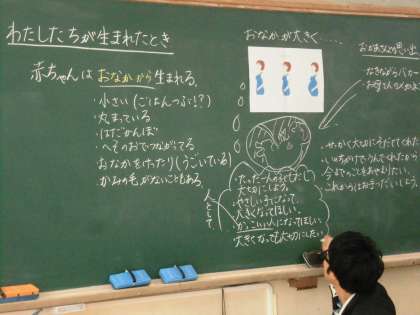 わたしたちが生まれたとき
赤ちゃんは おなかから 生まれる。
・小さい(ごはんつぶ!?)
・丸まっている
・はだかんぼ
・へそのおでつながってる
おなかをけったり(うごいている)
・かみの毛がないこともある。
おなかが大きく……
たった一人の
大切にしよう。
やさしい子になって、
大きくなってほしい。
かっこいい人になってほしい。
大きくなっても大切にしたい
人として、
おかあさんの思い出
なきながら
・せっかく大切にそだててくれた
・いのちがけでうんでくれたから
今までのことをあやまりたい。
これからはお手つだいしよう。